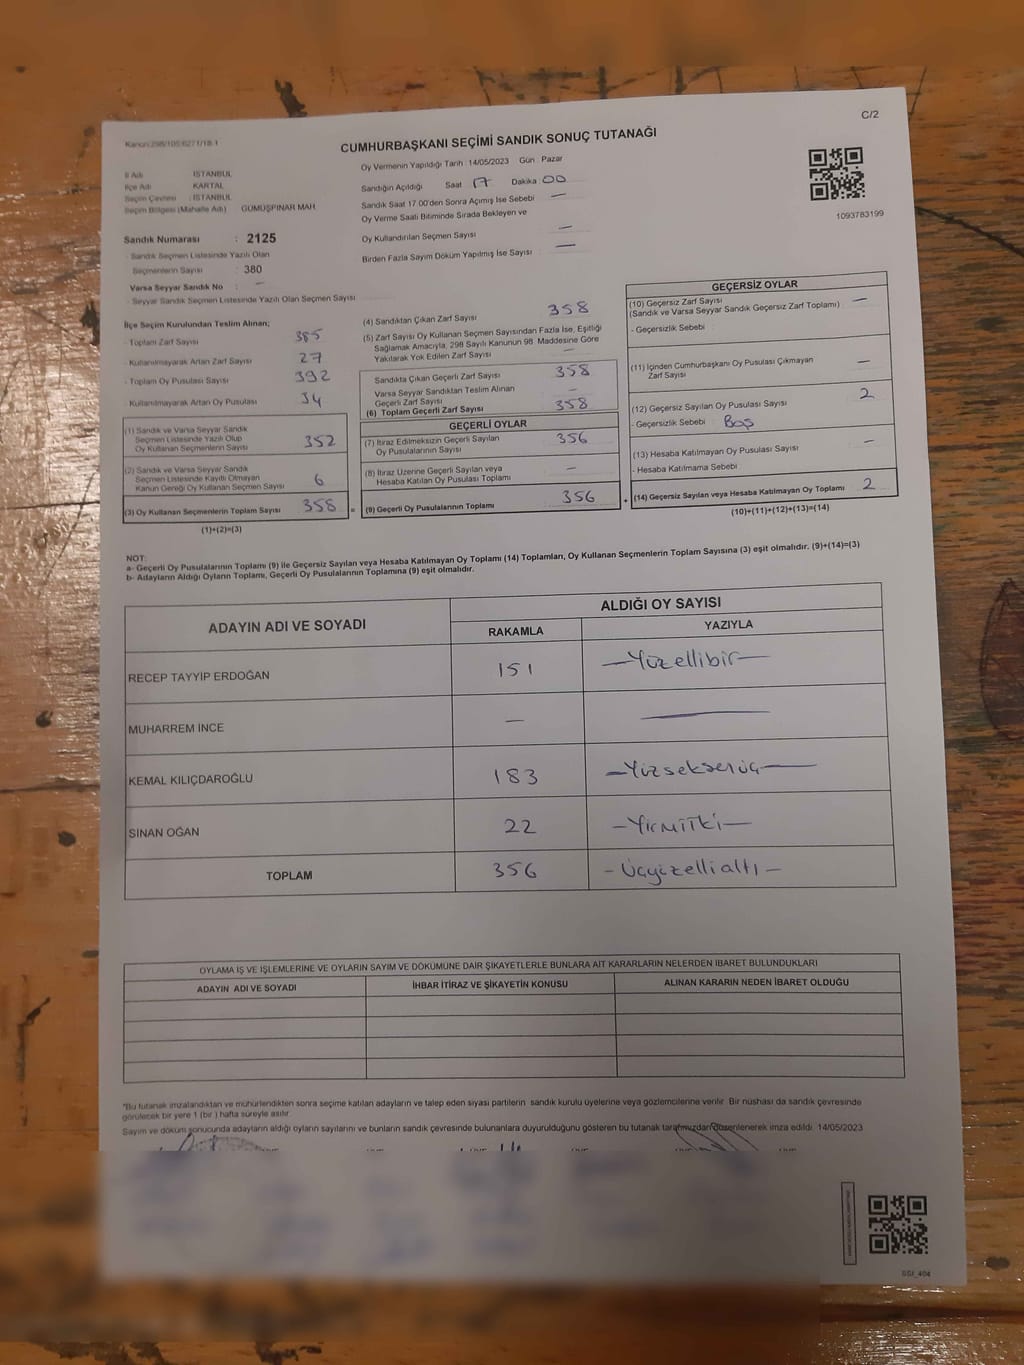 C/2
Kanun:298/105:6271/18:1
CUMHURBAŞKANI SEÇİMİ SANDIK SONUÇ TUTANAĞI
İl Adı : İSTANBUL
İlçe Adı : KARTAL
Seçim Çevresi : İSTANBUL
Seçim Bölgesi (Mahalle Adı) : GÜMÜŞPINAR MAH.
Sandık Numarası : 2125
- Sandık Seçmen Listesinde Yazılı Olan
Seçmenlerin Sayısı : 380
Varsa Seyyar Sandık No : —
- Seyyar Sandık Seçmen Listesinde Yazılı Olan Seçmen Sayısı
Oy Vermenin Yapıldığı Tarih : 14/05/2023 Gün : Pazar
Sandığın Açıldığı Saat : 17 Dakika : 00
Sandık Saat 17.00'den Sonra Açımış İse Sebebi : —
Oy Verme Saati Bitiminde Sırada Bekleyen ve
Oy Kullandırılan Seçmen Sayısı : —
Birden Fazla Sayım Döküm Yapılmış İse Sayısı : —
1093783199
İlçe Seçim Kurulundan Teslim Alınan;
- Toplam Zarf Sayısı : 385
- Kullanılmayarak Artan Zarf Sayısı : 27
- Toplam Oy Pusulası Sayısı : 392
- Kullanılmayarak Artan Oy Pusulası : 34
(1) Sandık ve Varsa Seyyar Sandık
Seçmen Listesinde Yazılı Olup
Oy Kullanan Seçmen Sayısı 352
(2) Sandık ve Varsa Seyyar Sandık
Seçmen Listesinde Kayıtlı Olmayan
Kanun Gereği Oy Kullanan Seçmen Sayısı 6
(3) Oy Kullanan Seçmenlerin Toplam Sayısı 358 =
(1)+(2)=(3)
(4) Sandıktan Çıkan Zarf Sayısı 358
(5) Zarf Sayısı Oy Kullanan Seçmen Sayısından Fazla İse, Eşitliği
Sağlamak Amacıyla, 298 Sayılı Kanunun 98. Maddesine Göre
Yakılarak Yok Edilen Zarf Sayısı —
Sandıkta Çıkan Geçerli Zarf Sayısı 358
Varsa Seyyar Sandıktan Teslim Alınan
Geçerli Zarf Sayısı —
(6) Toplam Geçerli Zarf Sayısı 358
GEÇERLİ OYLAR
(7) İtiraz Edilmeksizin Geçerli Sayılan
Oy Pusulalarının Sayısı 356
(8) İtiraz Üzerine Geçerli Sayılan veya
Hesaba Katılan Oy Pusulası Toplamı —
(9) Geçerli Oy Pusulalarının Toplamı 356 +
GEÇERSİZ OYLAR
(10) Geçersiz Zarf Sayısı
(Sandık ve Varsa Seyyar Sandık Geçersiz Zarf Toplamı) —
- Geçersizlik Sebebi
(11) İçinden Cumhurbaşkanı Oy Pusulası Çıkmayan
Zarf Sayısı —
(12) Geçersiz Sayılan Oy Pusulası Sayısı 2
- Geçersizlik Sebebi : Boş
(13) Hesaba Katılmayan Oy Pusulası Sayısı —
- Hesaba Katılmama Sebebi
(14) Geçersiz Sayılan veya Hesaba Katılmayan Oy Toplamı 2
(10)+(11)+(12)+(13)=(14)
NOT:
a- Geçerli Oy Pusulalarının Toplamı (9) ile Geçersiz Sayılan veya Hesaba Katılmayan Oy Toplamı (14) Toplamları, Oy Kullanan Seçmenlerin Toplam Sayısına (3) eşit olmalıdır. (9)+(14)=(3)
b- Adayların Aldığı Oyların Toplamı, Geçerli Oy Pusulalarının Toplamına (9) eşit olmalıdır.
ADAYIN ADI VE SOYADI ALDIĞI OY SAYISI
RAKAMLA YAZIYLA
RECEP TAYYİP ERDOĞAN 151 —Yüzellibir—
MUHARREM İNCE — —
KEMAL KILIÇDAROĞLU 183 —Yüzseksenüç—
SİNAN OĞAN 22 —Yirmiİki—
TOPLAM 356 -Üçyüzellialtı-
OYLAMA İŞ VE İŞLEMLERİNE VE OYLARIN SAYIM VE DÖKÜMÜNE DAİR ŞİKAYETLERLE BUNLARA AİT KARARLARIN NELERDEN İBARET BULUNDUKLARI
ADAYIN ADI VE SOYADI İHBAR İTİRAZ VE ŞİKAYETİN KONUSU ALINAN KARARIN NEDEN İBARET OLDUĞU
*Bu tutanak imzalandıktan ve mühürlendikten sonra seçime katılan adayların ve talep eden siyasi partilerin sandık kurulu üyelerine veya gözlemcilerine verilir. Bir nüshası da sandık çevresinde
görülecek bir yere 1 (bir) hafta süreyle asılır.
Sayım ve döküm sonucunda adayların aldığı oyların sayılarını ve bunların sandık çevresinde bulunanlara duyurulduğunu gösteren bu tutanak tarafımızdan düzenlenerek imza edildi. 14/05/2023
SSI_404